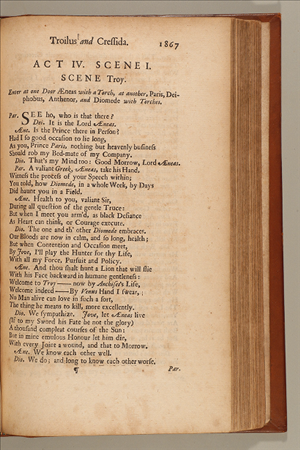 Troilus and Cressida. 1867
ACT IV. SCENE I.
SCENE Troy.
Enter at one Door Æneas with a Torch, at another, Paris, Dei-
phobus, Anthenor, and Diomede with Torches.
Par. SEE ho, who is that there?
Dei. It is the Lord Æneas.
Æne. Is the Prince there in Person?
Had I so good occasion to lie long,
As you, Prince Paris, nothing but heavenly business
Should rob my Bed-mate of my Company.
Dio. That's my Mind too: Good Morrow, Lord Æneas.
Par. A valiant Greek, Æneas, take his Hand.
Witness the process of your Speech within;
You told, how Diomede, in a whole Week, by Days
Did haunt you in a Field.
Æne. Health to you, valiant Sir,
During all question of the gentle Truce:
But when I meet you arm'd, as black Defiance
As Heart can think, or Courage execute.
Dio. The one and th' other Diomede embraces.
Our Bloods are now in calm, and so long, health;
But when Contention and Occasion meet,
By Jove, I'll play the Hunter for thy Life,
With all my Force, Pursuit and Policy.
Æne. And thou shalt hunt a Lion that will flie
With his Face backward in humane gentleness:
Welcome to Troy—now by Anchises's Life,
Welcome indeed—By Venus Hand I swear,
No Man alive can love in such a sort,
The thing he means to kill, more excellently.
Dio. We sympathize. Jove, let Æneas live
(If to my Sword his Fate be not the glory)
A thousand compleat courses of the Sun:
But in mine emulous Honour let him die,
With every Joint a wound, and that to Morrow.
Æne. We know each other well.
Dio. We do; and long to know each other worse.
¶ Par.